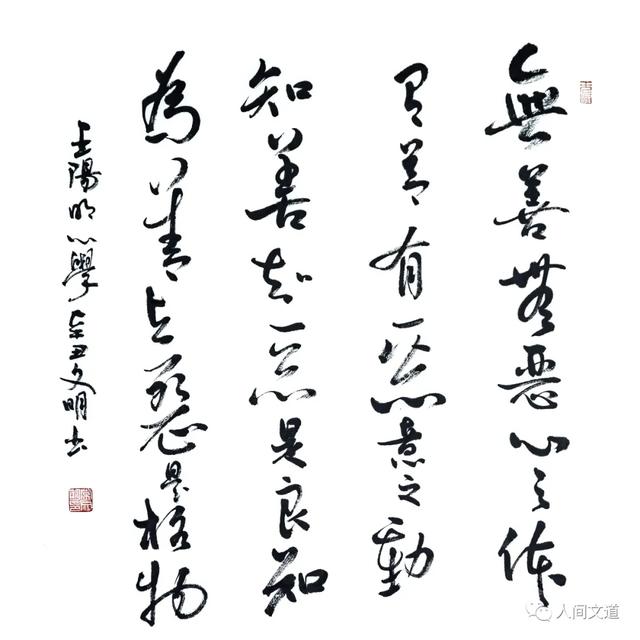 無善無惡心之体
有善有惡意之動
知善知惡是良知
為善去惡是格物
王陽明心學辛丑文明书
人间文道